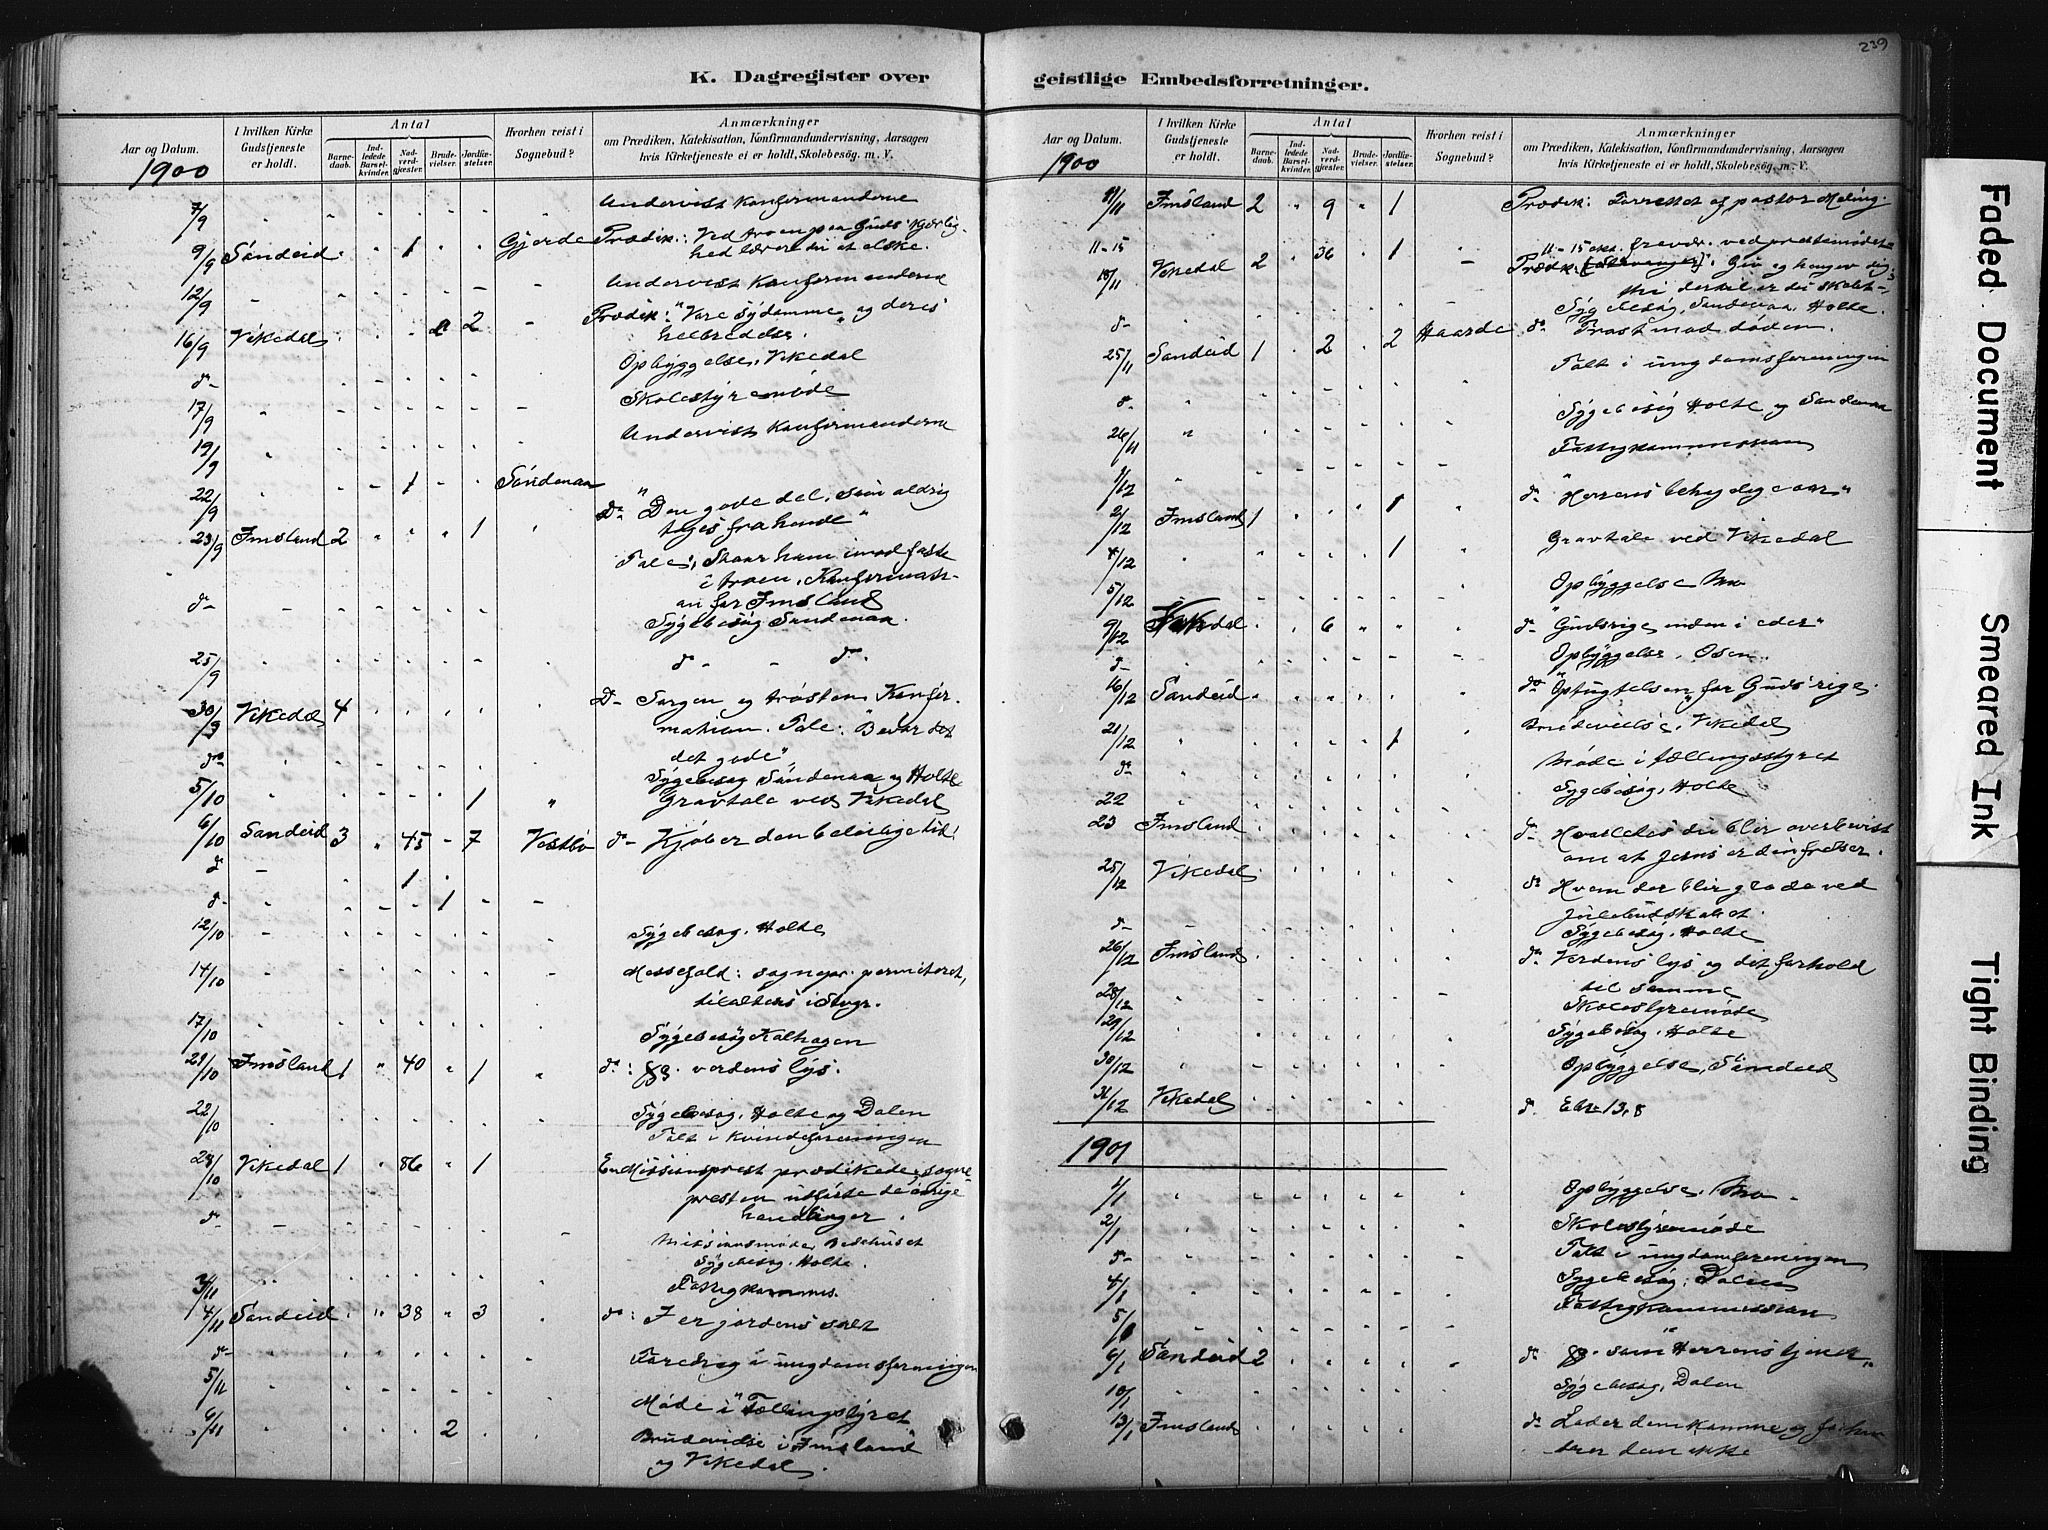 239
K. Dagregister over
geistlige Embedsforretninger.
Aar og Datum.
1900
I hvilken Kirke Gudstjeneste er holdt.
Antal
Barnedaab.
Indledede Barselkvinder.
Nadverdgjæster.
Brudevielser.
Jordfæstelser.
Hvorhen reist i Sognebud?
Anmærkninger
om Prædiken, Katekisation, Konfirmandundervisning, Aarsagen
hvis Kirketjeneste ei er holdt, Skolebesøg, m. V.
7/9 Undervist Konfirmanderne
9/9 Sandeid 1 Gjerde Prædik.: Ved troen paa Guds Kjærlig-
hed lærer vi at elske.
12/9 Undervist Konfirmanderne
16/9 Vikedal 2 Prædik: "Vare sydomme og deres
helbredelse"
d- Opbyggelse, Vikedal
17/9 Skolestyremøde
19/9 Undervist Konfirmanderne
22/9 1 Sandenaa
23/9 Imsland 2 1 d- "Den gode del, som aldrig
tages fra hende"
Tale: Staar ham imod faste
i troen, Konfirmati-
on for Imsland
d- Sygebesøg Sandenaa.
25/9 d- - d-
30/9 Vikedal 4 d- Sorgen og trøsten Konfir-
mation. Tale: "Bevar det
det gode"
d- Sygebesøg Sandenaa og Holte
5/10 1 Gravtale ved Vikedal
6/10 Sandeid 3 45 7 Vestbø d- Kjøber den beleilige tid!
d- 1
d- 1
12/10 Sygebesøg, Holte
14/10 Messefald: sognepr. permiteret,
tilaltens i Stvgr.
17/10 Sygebesøg Kolhagen
21/10 Imsland 1 40 1 d-: verdens lys.
22/10 Sygebesøg, Holte og Dalen
Talt i Kvindeforeningen
28/10 Vikedal 1 86 1 En Missionsprest prædikede; sogne-
presten utførte de øvrige
handlinger.
d- Missionsmøde, Bedehuset
Sygebesøg, Holte.
3/11 Fattigkommis.
4/11 Sandeid 38 3 d-: I er jordens salt
d- Foredrag i ungdomsforningen
5/11 Møde i "Tællingstyret
6/11 2 Brudevidse i Imsland
og Vikedal.
Aar og Datum.
1900
I hvilken Kirke Gudstjeneste er holdt.
Antal
Barnedaab.
Indledede Barselkvinder.
Nadverdgjæster.
Brudevielser.
Jordfæstelser.
Hvorhen reist i Sognebud?
Anmærkninger
om Prædiken, Katekisation, Konfirmandundervisning, Aarsagen
hvis Kirketjeneste ei er holdt, Skolebesøg, m. V.
11/11 Imsland 2 9 1 Prædik: Forrettet af pastor Meling.
11-15 11-15 okt. fravær. ved prestemødet
18/11 Vikedal 2 36 1 Prædik: Giv og hengiv dig;
thi dertil er du skabt-
d- Sygebesøg, Sandenaa, Holte.
25/11 Sandeid 1 2 2 Haarde d- Trøst mod døden.
d- Talt i ungdomsforeningen
26/11 Sygebesøg Holte og Sandenaa
1/12 Fattigkommission
2/12 Imsland 1 1 d- "Herrens behagelige aar"
4/12 1 Gravtale ved Vikedal
5/12 Opbyggelse Mo
9/12 Vikedal 6 d- "Gudsrige inden i eder"
d- Opbyggelse, Osen
16/12 Sandeid d- "Optugtelsen" for Guds rige.
21/12 1 Brudevielse, Vikedal
d- Møde i tællingsstyret
22 Sygebesøg, Holte
23 Imsland d- Hvorledes du blir overbevist
om at Jesus er din frelser.
25/12 Vikedal d- Hvem der blir glade ved
julebudskabet
d- Sygebesøg, Holte
26/12 Imsland d- Verdens lys og dit forhold
til samme
28/12 Skolestyremøde
29/12 Sygebesøg, Holte
30/12 Opbyggelse, Sandeid
31/12 Vikedal d- Ebr 13,8
1901
1/1 Opbyggelse, Mo
2/1 Skolestyremøde
d- Talt i ungdomforeningen
4/1 Sygebesøg, Dalen
5/1 Fattigkommission
6/1 Sandeid 2 d- som Herrens tjener"
10/1 Sygebesøg, Dalen
13/1 Imsland d- Lader dem komme og forhin-
drer dem ikke
Faded Document
Smeared Ink
Tight Binding